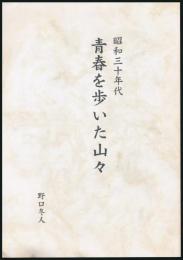 昭和三十年代
青春を歩いた山々
野口冬人